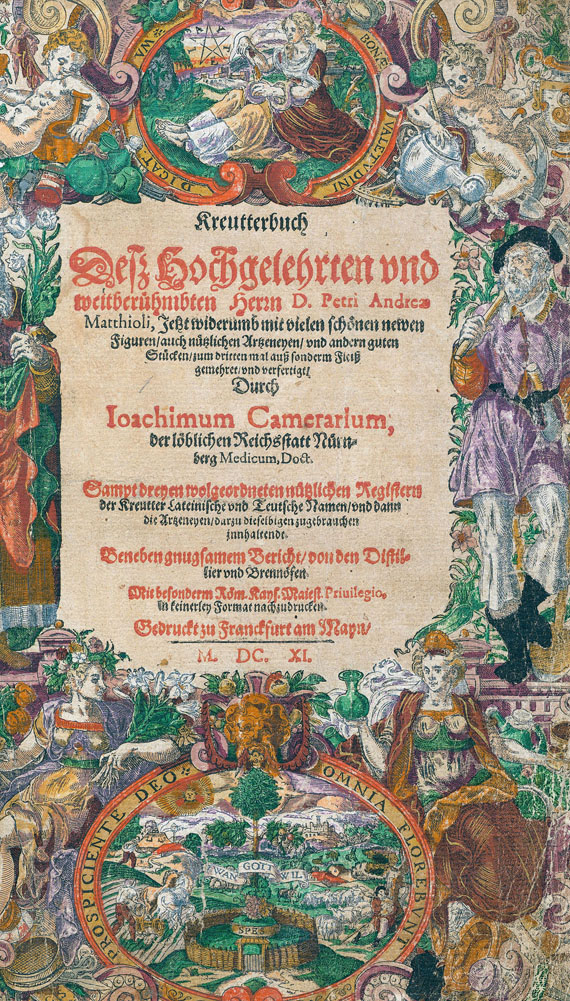 DICAT VIM BONAE VALETUDINI
Kreutterbuch
Desz Hochgelehrten vnd
weitberühmbten Herrn D. Petri Andreæ
Matthioli, Jetzt widerumb mit vielen schönen newen
Figuren/auch nützlichen Artzeneyen/ vnd andern guten
Stücken/zum dritten mal auß sonderm Fleiß
gemehret/vnd verfertigt/
Durch
Ioachimum Camerarium,
der löblichen Reichsstatt Nürn-
berg Medicum, Doct.
Sampt dreyen wolgeordneten nützlichen Registern
der Kreutter Lateinische vnd Teutsche Namen/vnd dann
die Artzeneyen/darzu dieselbigen zugebrauchen
jnnhaltendt.
Beneben gnugsamem Bericht/von den Distil-
lier vnd Brennöfen.
Mit besonderm Röm. Kays. Maiest. Priuilegio,
in keinerley Format nachzudrucken.
Gedruckt zu Franckfurt am Mayn/
M. DC. XI.
PROSPICIENTE DEO OMNIA FLOREBVNT
WAN GOTT WIL
SPES